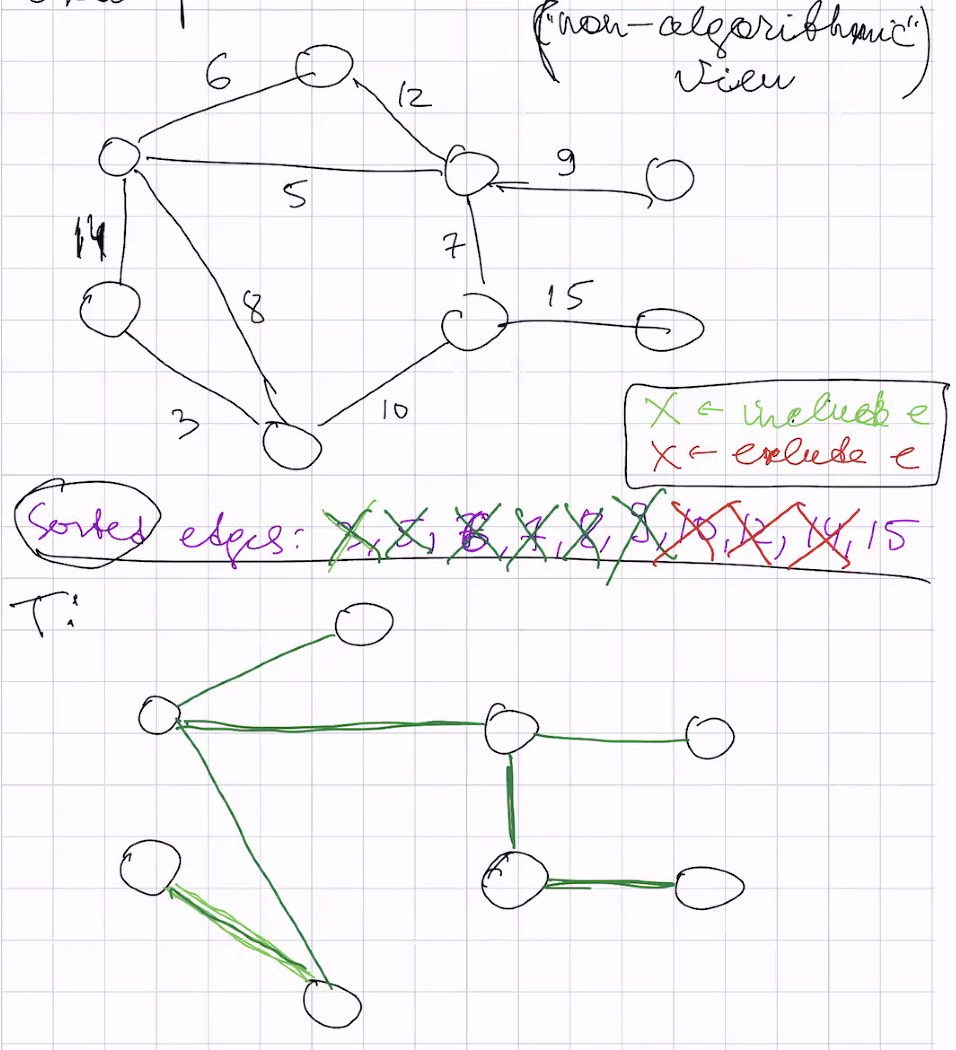 ("non-algorithmic"
view)
6
12
9
5
14
7
8
15
3
10
X ← include e
X ← exclude e
Sorted edges: 3, 5, 6, 7, 8, 9, 10, 12, 14, 15
T: